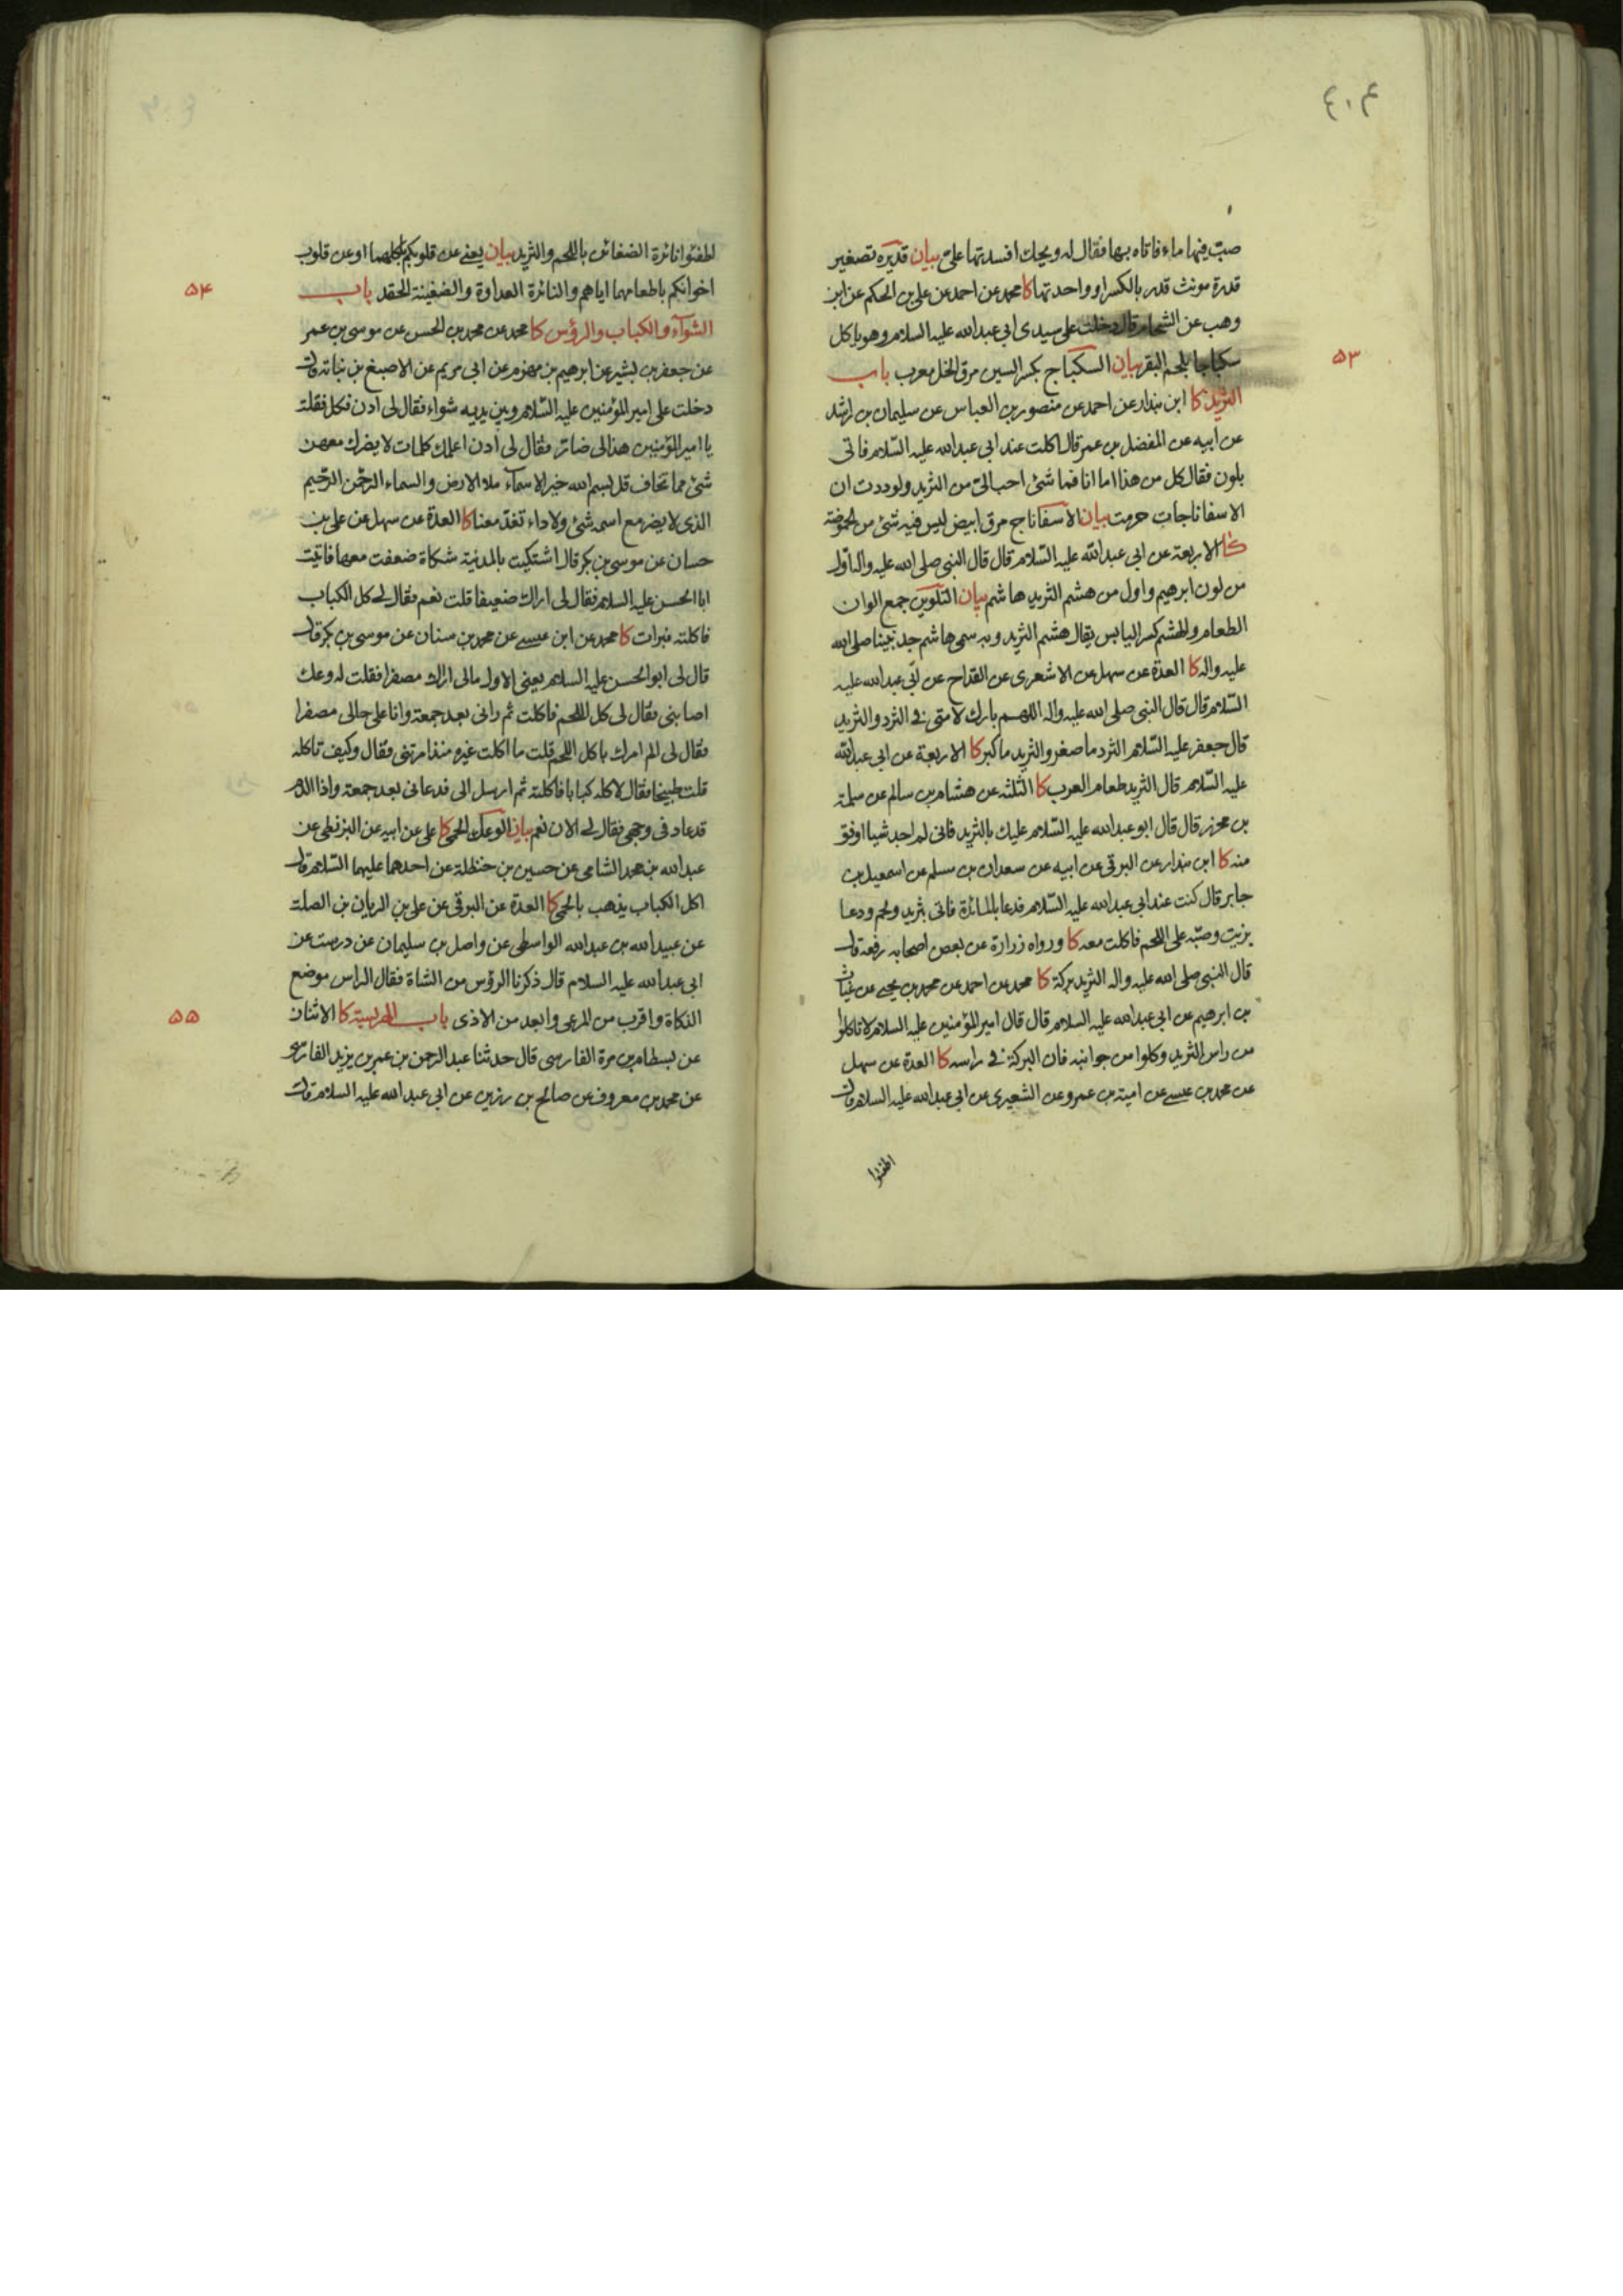 ٤٠٤
صبّ فيها ماء فاتاه بها فقال له ويحك افسدتها علىّ بيان قديره تصغير
قدرة مونث قدر بالكسر او واحدتها كا محمد عن احمد عن على بن الحكم عن ابن
وهب عن الشحام قال دخلت على سيدى ابى عبدالله عليه السلام وهو ياكل
سكباجا بلحم البقر بيان السكباج بكسر السين مرق الخل معرب باب
٥٣
الثريد كا ابن بندار عن احمد عن منصور بن العباس عن سليمان بن راشد
عن ابيه عن المفضل بن عمر قال اكلت عند ابى عبدالله عليه السّلام فاتى
بلون فقال كل من هذا اما انا فما شئ احب الىّ من الثريد ولوددت ان
الاسفاناجات حرمت بيان الاسفاناج مرق ابيض ليس فيه شئ من الحموضة
كا الاربعة عن ابى عبدالله عليه السّلام قال قال النبى صلى الله عليه واله اول
من لون ابرهيم واول من هشم الثريد هاشم بيان التلوين جمع الوان
الطعام والهشم كسر اليابس يقال هشم الثريد وبه سمى هاشم جد نبينا صلى الله
عليه واله كا العدة عن سهل عن الاشعرى عن القداح عن ابى عبدالله عليه
السّلام قال قال النبى صلى الله عليه واله اللهم بارك لامتى فى الثرد والثريد
قال جعفر عليه السّلام الثرد ما صغر والثريد ما كبر كا الاربعة عن ابى عبدالله
عليه السّلام قال الثريد طعام العرب كا الثلثة عن هشام بن سالم عن سلمة
بن محرز قال قال ابو عبدالله عليه السّلام عليك بالثريد فانى لم اجد شيا اوفق
منه كا ابن بندار عن البرقى عن ابيه عن سعدان بن مسلم عن اسمعيل بن
جابر قال كنت عند ابى عبدالله عليه السّلام فدعا بالمائدة فاتى بثريد ولحم ودعا
بزيت وصبّه على اللحم فاكلت معه كا ورواه زرارة عن بعض اصحابه رفعه قال
قال النبى صلى الله عليه واله الثريد بركة كا محمد عن احمد عن محمد بن يحيى عن غياث
بن ابرهيم عن ابى عبدالله عليه السلام قال قال امير المؤمنين عليه السلام لا تاكلوا
من راس الثريد وكلوا من جوانبه فان البركة فى راسه كا العدة عن سهل
عن محمد بن عيسى عن امية بن عمرو عن الشعيرى عن ابى عبدالله عليه السلام قال
اطفئوا
اطفئوا نائرة الضغائن باللحم والثريد بيان يعنى عن قلوبكم باكلهما او عن قلوب
اخوانكم باطعامهما اياهم والنائرة العداوة والضغينة الحقد باب
٥۴
الشوآء والكباب والرؤس كا محمد عن محمد بن الحسن عن موسى بن عمر
عن جعفر بن بشير عن ابرهيم بن مهزم عن ابى مريم عن الاصبغ بن نباتة قال
دخلت على امير المؤمنين عليه السّلام وبين يديه شواء فقال لى ادن فكل فقلت
يا امير المؤمنين هذا لى ضار فقال لى ادن اعلمك كلمات لا يضرك معهن
شئ مما تخاف قل بسم الله خير الاسمآء ملا الارض والسماء الرحمن الرحيم
الذى لا يضر مع اسمه شئ ولا داء تغدّ معنا كا العدة عن سهل عن على بن
حسان عن موسى بن بكر قال اشتكيت بالمدينة شكاة ضعفت معها فاتيت
ابا الحسن عليه السلام فقال لى اراك ضعيفا قلت نعم فقال لى كل الكباب
فاكلته فبرات كا محمد عن ابن عيسى عن محمد بن سنان عن موسى بن بكر قال
قال لى ابو الحسن عليه السلام يعنى الاول مالى اراك مصفرا فقلت له وعك
اصابنى فقال لى كل اللحم فاكلت ثم رانى بعد جمعة وانا على حالى مصفرا
فقال لى الم امرك باكل اللحم قلت ما اكلت غيره منذ امرتنى فقال وكيف تاكله
قلت طبيخا فقال لا كله كبابا فاكلته ثم ارسل الى فدعانى بعد جمعة واذا الدم
قد عاد فى وجهى فقال لى الان نعم بيان الوعك الحمى كا على عن ابيه عن البزنطى عن
عبدالله بن محمد الشامى عن حسين بن حنظلة عن احدهما عليهما السّلام قال
اكل الكباب يذهب بالحمى كا العدة عن البرقى عن على بن الريان بن الصلت
عن عبيدالله بن عبدالله الواسطى عن واصل بن سليمان عن درست عن
ابى عبدالله عليه السلام قال ذكرنا الرؤس من الشاة فقال الراس موضع
الذكاة واقرب من المرعى وابعد من الاذى باب الهريسة كا الاثنان
٥٥
عن بسطام بن مرة الفارسى قال حدثنا عبدالرحمن بن عمر بن يزيد الفارسى
عن محمد بن معروف عن صالح بن رزين عن ابى عبدالله عليه السلام قال